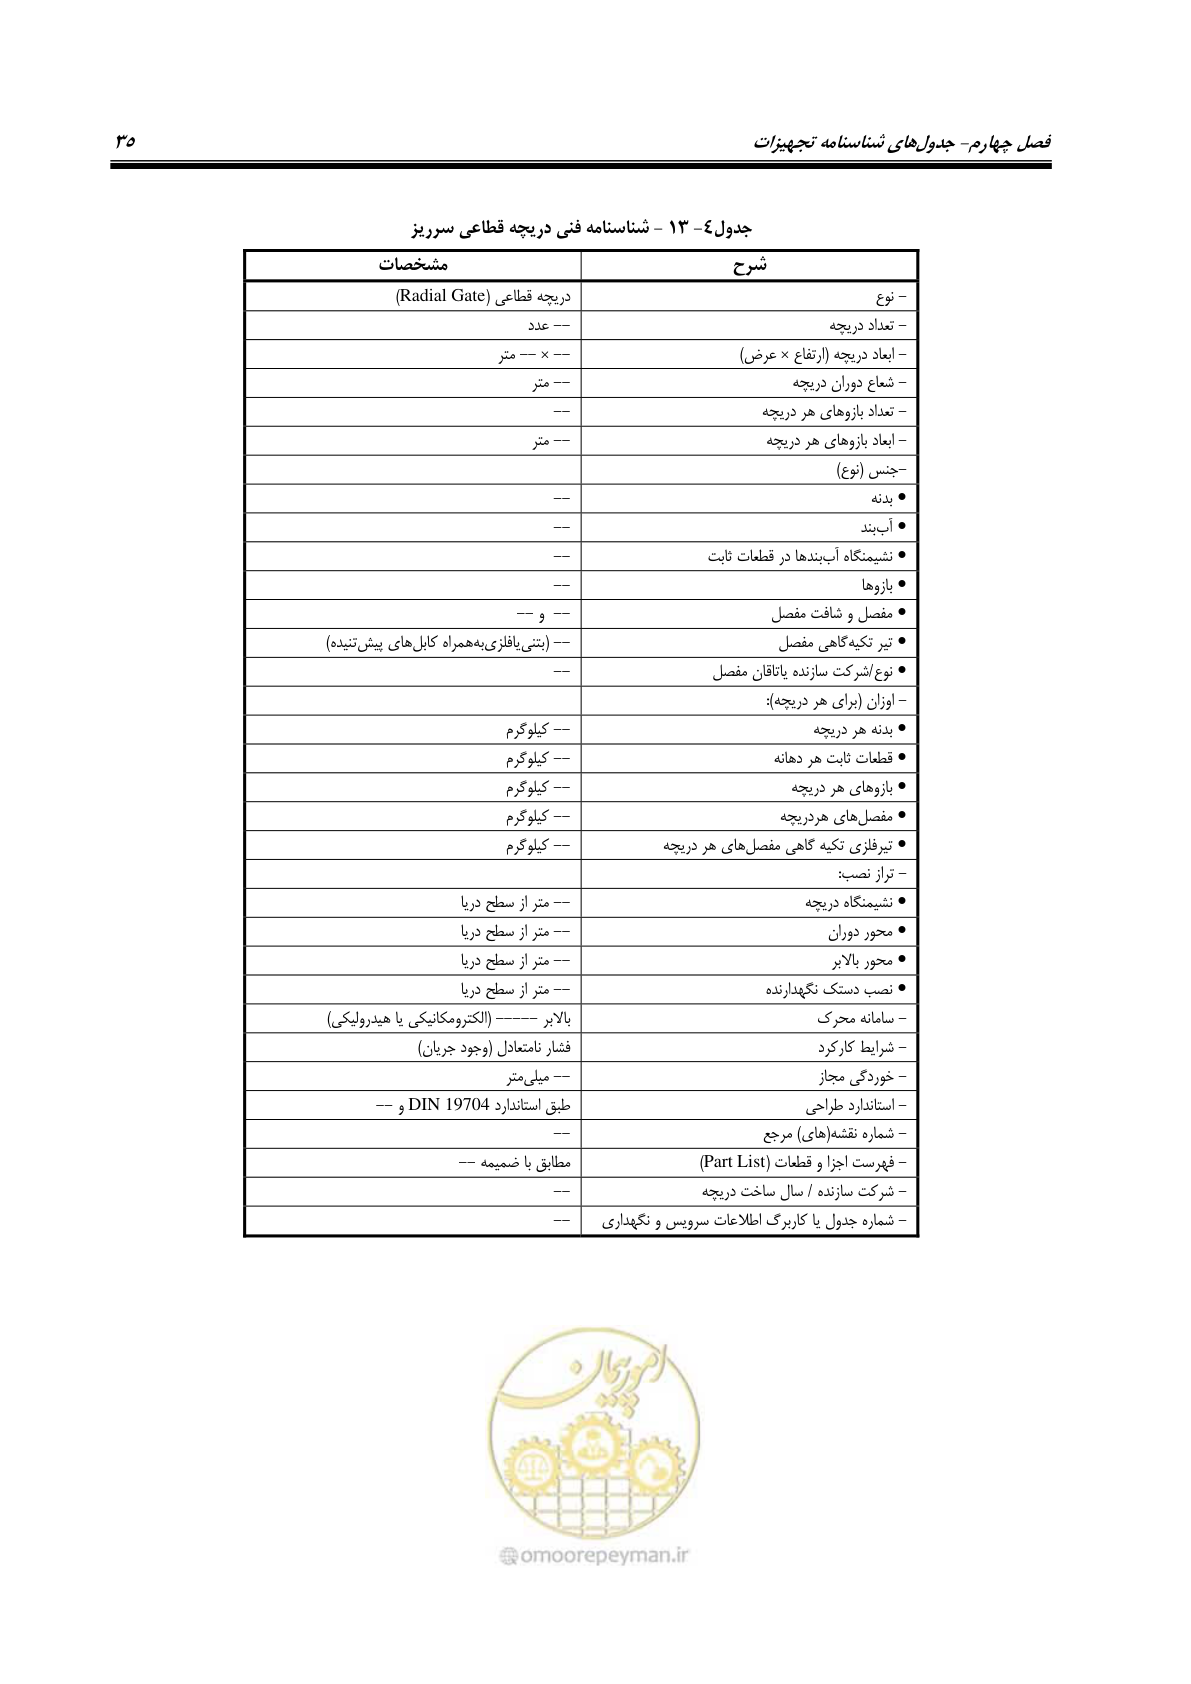 فصل چهارم- جدول‌های شناسنامه تجهیزات ۳۵
جدول٤- ۱۳ - شناسنامه فنی دریچه قطاعی سرریز
شرح مشخصات
- نوع دریچه قطاعی (Radial Gate)
- تعداد دریچه -- عدد
- ابعاد دریچه (ارتفاع × عرض) -- × -- متر
- شعاع دوران دریچه -- متر
- تعداد بازوهای هر دریچه --
- ابعاد بازوهای هر دریچه -- متر
-جنس (نوع)
• بدنه --
• آب‌بند --
• نشیمنگاه آب‌بندها در قطعات ثابت --
• بازوها --
• مفصل و شافت مفصل -- و --
• تیر تکیه‌گاهی مفصل -- (بتنی‌یافلزی‌به‌همراه کابل‌های پیش‌تنیده)
• نوع/شرکت سازنده یاتاقان مفصل --
- اوزان (برای هر دریچه):
• بدنه هر دریچه -- کیلوگرم
• قطعات ثابت هر دهانه -- کیلوگرم
• بازوهای هر دریچه -- کیلوگرم
• مفصل‌های هردریچه -- کیلوگرم
• تیرفلزی تکیه گاهی مفصل‌های هر دریچه -- کیلوگرم
- تراز نصب:
• نشیمنگاه دریچه -- متر از سطح دریا
• محور دوران -- متر از سطح دریا
• محور بالابر -- متر از سطح دریا
• نصب دستک نگهدارنده -- متر از سطح دریا
- سامانه محرک بالابر ----- (الکترومکانیکی یا هیدرولیکی)
- شرایط کارکرد فشار نامتعادل (وجود جریان)
- خوردگی مجاز -- میلی‌متر
- استاندارد طراحی طبق استاندارد DIN 19704 و --
- شماره نقشه(های) مرجع --
- فهرست اجزا و قطعات (Part List) مطابق با ضمیمه --
- شرکت سازنده / سال ساخت دریچه --
- شماره جدول یا کاربرگ اطلاعات سرویس و نگهداری --
امور پیمان
@omoorepeyman.ir